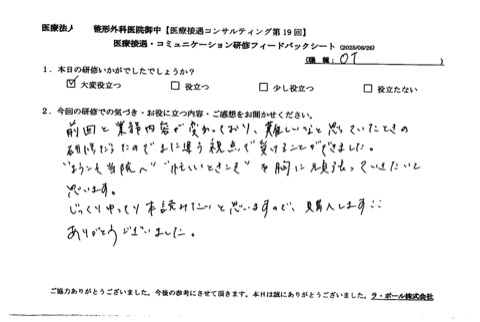 医療法人 整形外科医院御中【医療接遇コンサルティング第19回】
医療接遇・コミュニケーション研修フィードバックシート (2025/06/26)
(職種: OT )
1．本日の研修いかがでしたでしょうか？
☑ 大変役立つ □ 役立つ □ 少し役立つ □ 役立たない
2．今回の研修での気づき・お役に立つ内容・ご感想をお聞かせください。
前回と業務内容が変わっており、難しいなと思っていたときの
研修だったのでまた違う視点で受けることができました。
"ようこそ当院へ" "忙しいときこそ" を胸に頑張っていきたいと
思います。
じっくりゆっくり本読みたいと思いますので、購入します
ありがとうございました。
ご協力ありがとうございました。今後の参考にさせて頂きます。本日は誠にありがとうございました。ラ・ポール株式会社